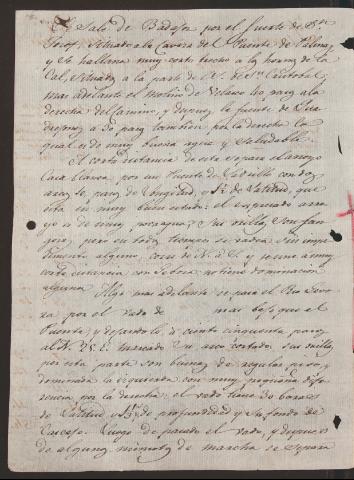 Se Sale de Badajoz por el fuerte de Sn.
situado a la Cavera del Puente de Palmas
y se hallan a muy corto trecho los hornos de la
Cal, situados a la parte del S. de Sn. Cristobal;
mas adelante el molino de Velasco 60 pasos a la
derecha del camino, y despues la fuente de
a 20 pasos tambien por la derecha la
qual es de muy buena agua y saludable.
A corta distancia de esta se pasa el arroyo
por un Puente de Ladrillo con
pasos de Longitud, y de Latitud, que
esta en muy buen estado: el expresado arro-
yo es de muy poca agua; sus orillas son
pero en todos tiempos se vadea sin impe-
dimento alguno, corre de N. a S. y se une a muy
corta distancia con Xebora: no tiene dominacion
alguna. Algo mas adelante se pasa el Rio Xevo-
ra por el vado de mas bajo que el
Puente, y dejando le a ciento cinquenta pasos
al N. y S.E. marcado su arco cortado. Sus orillas
por esta parte son buenas de regular piso, y
dominada la izquierda con muy pequeña dife-
rencia por la derecha: el vado tiene 30 varas
de Latitud y de profundidad y su fondo de
Cascajo. Luego de pasado el vado, y despues
de algunos minutos de marcha se separa